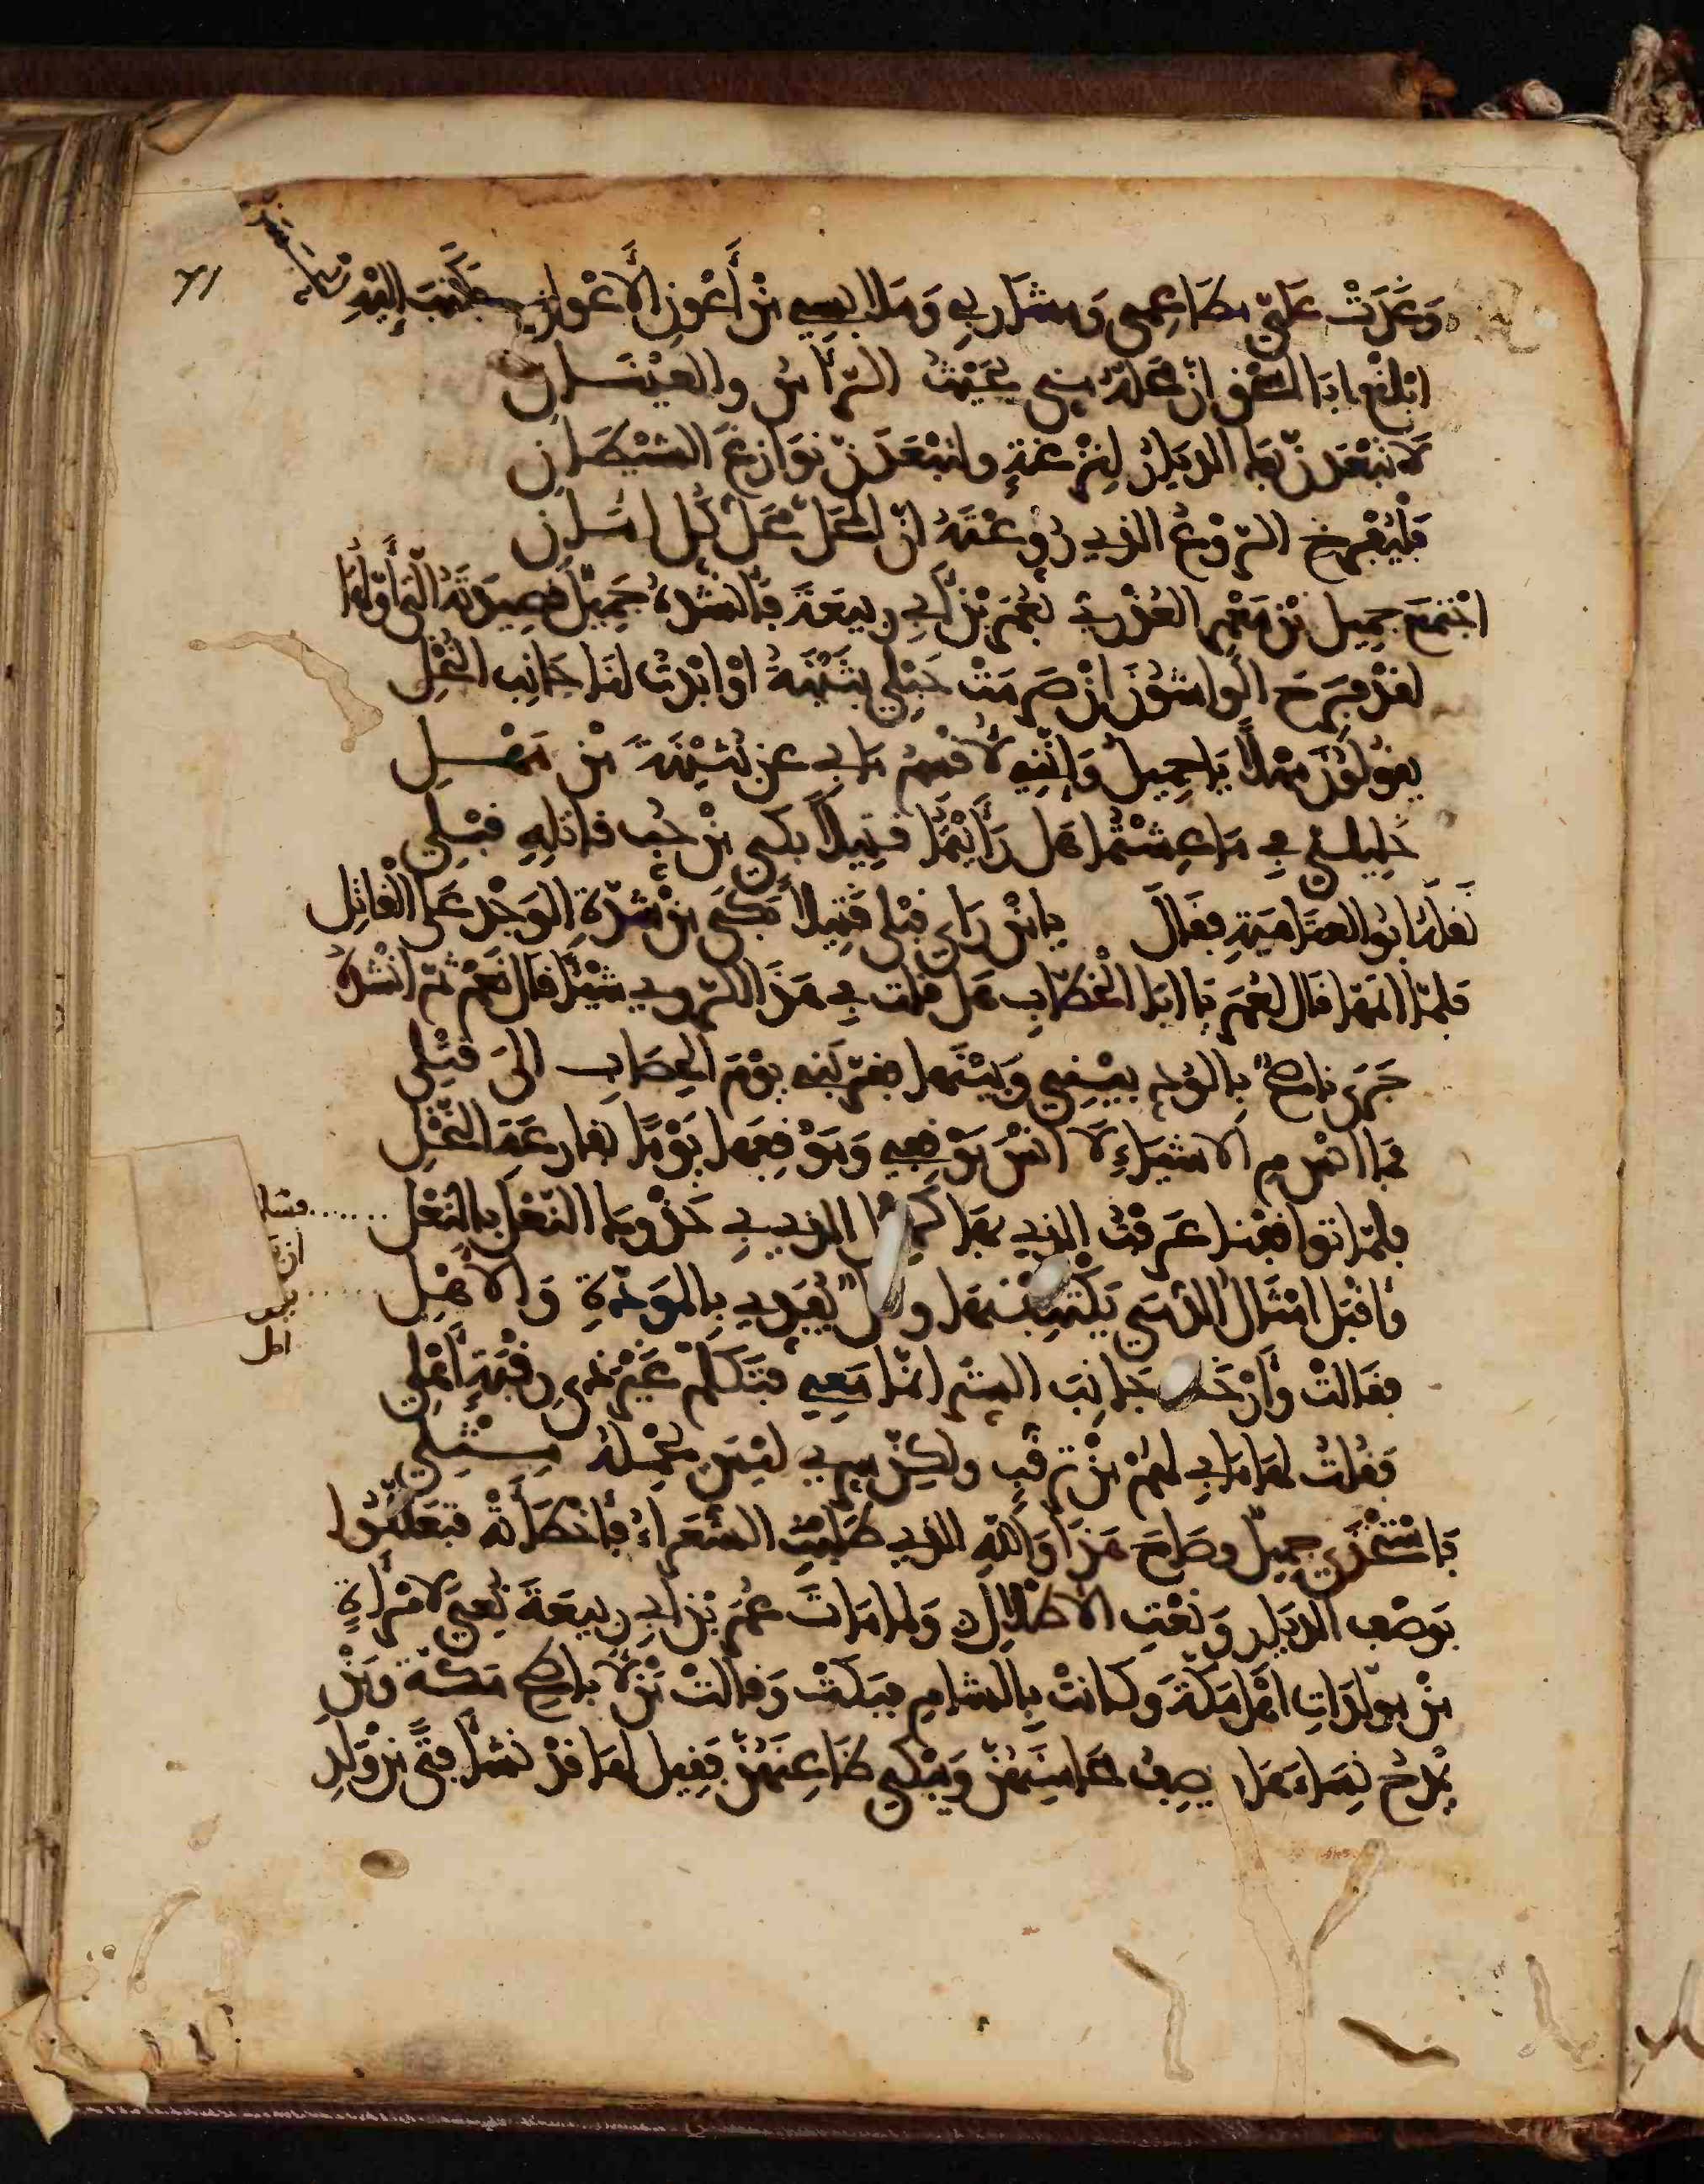 وَغَدَتْ عَلَيّ مطَاعِمِي وَمشَارِبِي وَمَلابسِي مِنْ أَعْوَنِ الأَعْوانِ فكتبَ إليْهِ
ابْلغ ابَا السّقر انّ محلّهُ منّي بحَيْثُ الرّأسُ والعيْنــانِ
لَا تبْعَدَنْ بكَ الديَارُ لِنزْغةٍ ولتبْعَدَنّ نوَازِغُ الشيْطَـانِ
فَلْيُفْرِخ الرّوْعُ الذِي رُوِّعْتَهُ انّ المحَلّ محَلُّ كُلِّ امَـانِ
اجْتَمعَ جميل بْن مَعْمر العُذْرِيّ بعُمَر بْن أبِي رَبِيعَةَ فأنشدهُ جَمِيلٌ قصِيدَتَهُ الّتِي أَوّلُهَا
لقدْ فَرِحَ الوَاشُونَ انْ صَرَمَتْ حَبْلِي بُثَيْنَةُ اوْ ابْدَتْ لنَا جَانِب البُخْلِ
يقُولُونَ مَهْلاً يَا جميل وَإنّنِي لأقْسِمُ مَا بِي عن بُثَيْنَةَ مِنْ مَهْـــلِ
خَلِيليّ فِي مَا عِشْتُمَا هَل رَأيْتُمَا قتِيلاً بَكَى مِنْ حُبّ قاتِلِهِ قَبْـلِي
نَقلَهُ ابُو العتَاهِيَةِ فقَالَ يا مَنْ رَاى قبْلِي قَتِيلاً بَكَى مِنْ شدّةِ الوَجْدِ عَلَى القاتِل
فلمّا اتمّهَا قال لعُمَر يَا ابَا الخطّابِ هَل قلت فِي هَذَا الرّوِي شيْئاً قال نَعَمْ ثمّ انْشَدَهُ
جَرَى نَاصِحٌ بِالوُدِّ بيْنِي وَبَيْنَهَا فقرّبَنِي يوْمَ الحِصَابِ الى قَتْلِي
فمَا انْسَ مِ الاشْيَاءِ لا انْسَ مَوْقِفِي وَمَوْقِفَهَا يَوْماً بقارعَةِ النّخْلِ
فلمّا توَاقفْنَا عَرَفْتُ الذي بهَا الذِي بِي حَذْوكَ النّعْلَ بِالنّعْلِ
وأقْبَل امْثَال الدُّمَى يَكْتَنِفْنَهَا يُفَدِّي بِالمَوَدّةِ وَالأهْــلِ
فقالت وَأرْخَت جَانِبَ السّتر انّمَا مَعِي فَتَكَلّمْ غَيْر ذِي رِقْبَةٍ أَهْلِي
فَقُلْتُ لهَا مَا بِي لهُمْ مِنْ تَرَقُّبٍ ولكِنّ سِرّي ليْسَ يَحْمِلهُ مِــثْــلِي
فَاسْتَخْذَى جميلٌ وصَاحَ هَذَا وَاللّهِ الذِي طَلَبَتِ الشُّعَرَاءُ فأخْطَأَتْهُ فتَعَلّلُوا
بوَصْفِ الديَارِ وَنَعْتِ الأطْلالِ وَلمّا مَاتَ عُمَر بْن أبِي رَبِيعَةَ نُعِيَ لامْرَأةٍ
مِنْ مولدَاتِ اهْلِ مَكّةَ وَكَانَتْ بِالشامِ فبَكَتْ وَقالتْ مَنْ لأباطِحِ مَكّةَ وَمَنْ
يَمْدَحُ نِسَاءَهَا ويَصِفُ مَحَاسِنَهُنّ وَيَبْكِي ظَاعِنَهُنّ فقيلَ لهَا قدْ نشأ فتًى مِنْ وَلدِ
٧١